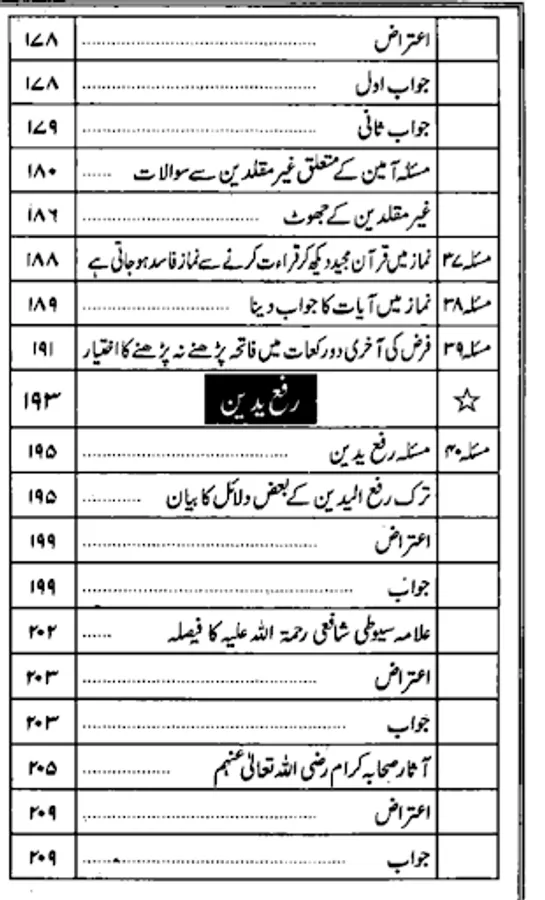 اعتراض ........ ۱۷۸
جواب اول ........ ۱۷۸
جواب ثانی ........ ۱۷۹
مسئلہ آمین کے متعلق غیر مقلدین سے سوالات ...... ۱۸۰
غیر مقلدین کے جھوٹ ........ ۱۸۶
مسئلہ ۳۷ نماز میں قرآن مجید دیکھ کر قراءت کرنے سے نماز فاسد ہو جاتی ہے ۱۸۸
مسئلہ ۳۸ نماز میں آیات کا جواب دینا ........ ۱۸۹
مسئلہ ۳۹ فرض کی آخری دو رکعات میں فاتحہ پڑھنے نہ پڑھنے کا اختیار ۱۹۱
☆ رفع یدین ۱۹۳
مسئلہ ۴۰ مسئلہ رفع یدین ........ ۱۹۵
ترک رفع الیدین کے بعض دلائل کا بیان ........ ۱۹۵
اعتراض ........ ۱۹۹
جواب ........ ۱۹۹
علامہ سیوطی شافعی رحمۃ اللہ علیہ کا فیصلہ ...... ۲۰۲
اعتراض ........ ۲۰۳
جواب ........ ۲۰۳
آثار صحابہ کرام رضی اللہ تعالیٰ عنہم ........ ۲۰۵
اعتراض ........ ۲۰۹
جواب ........ ۲۰۹